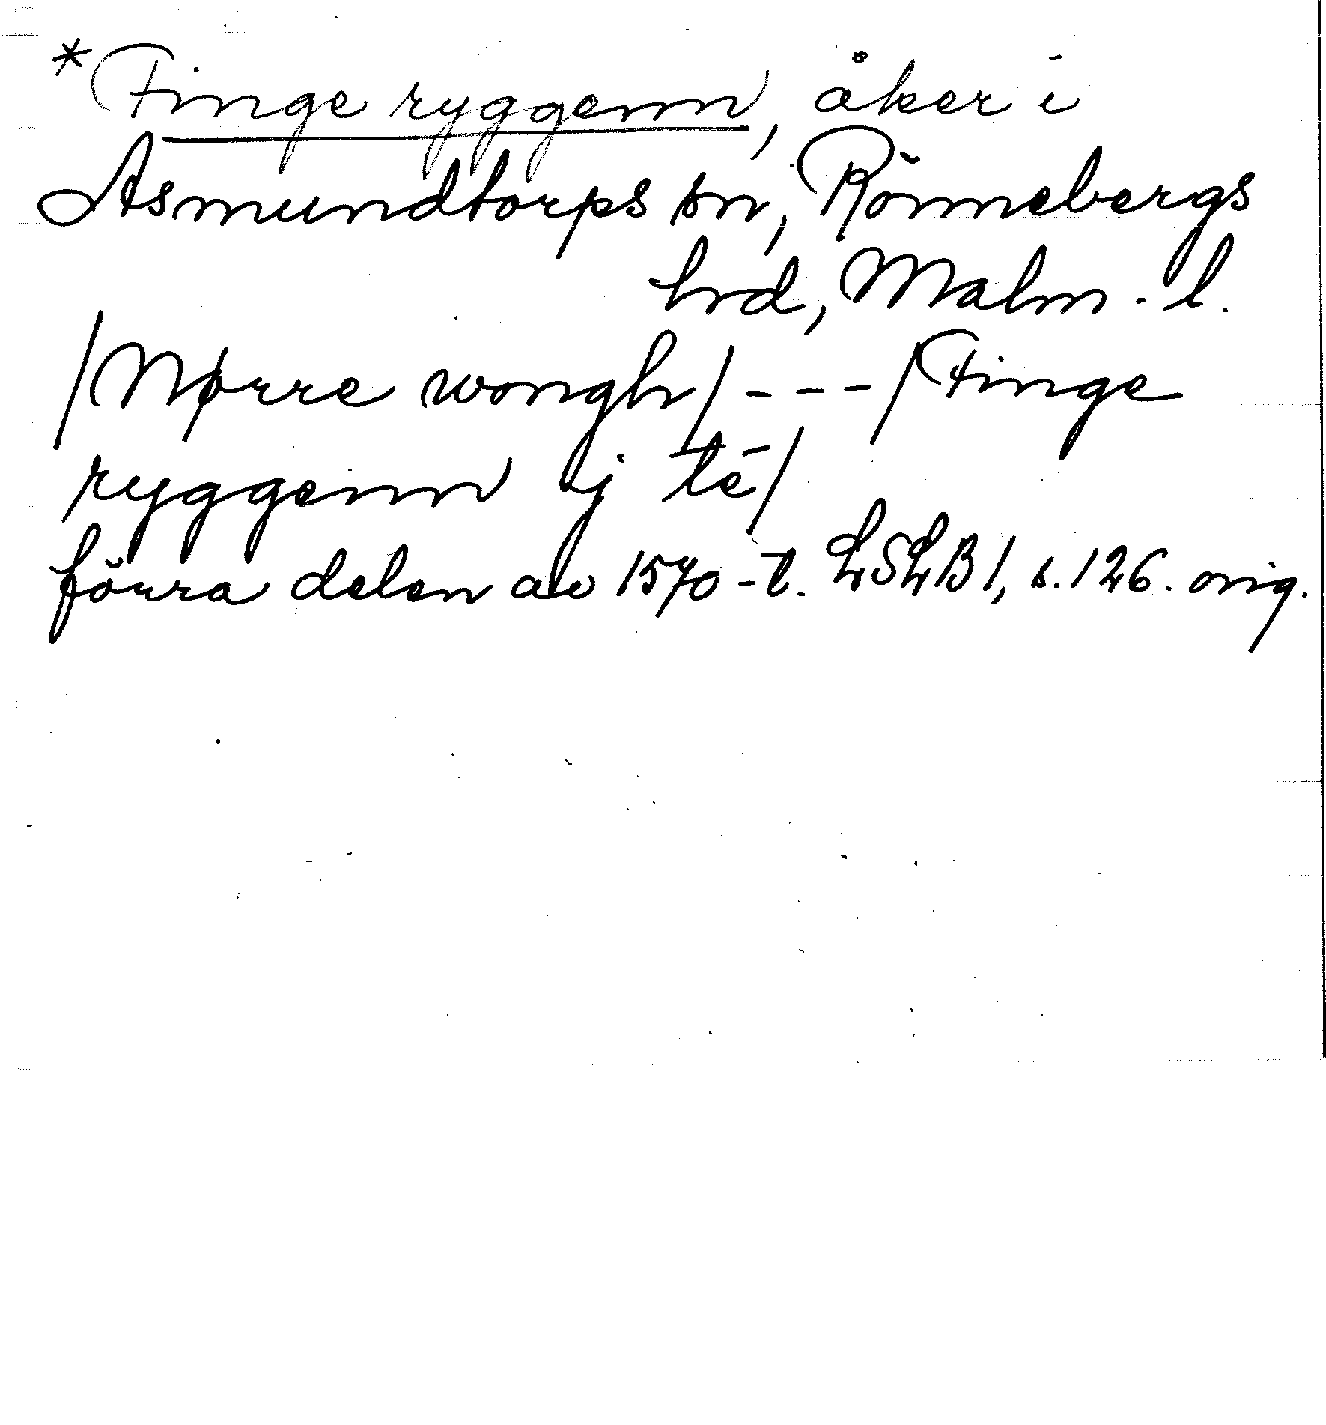 *Finge ryggenn, åker i
Asmundtorps sn, Rönnebergs
hrd, Malm. l.
/Nørre wongh/ - - - /Finge
ryggenn ij té/
förra delen av 1570-t. LSLB 1, s. 126. orig.